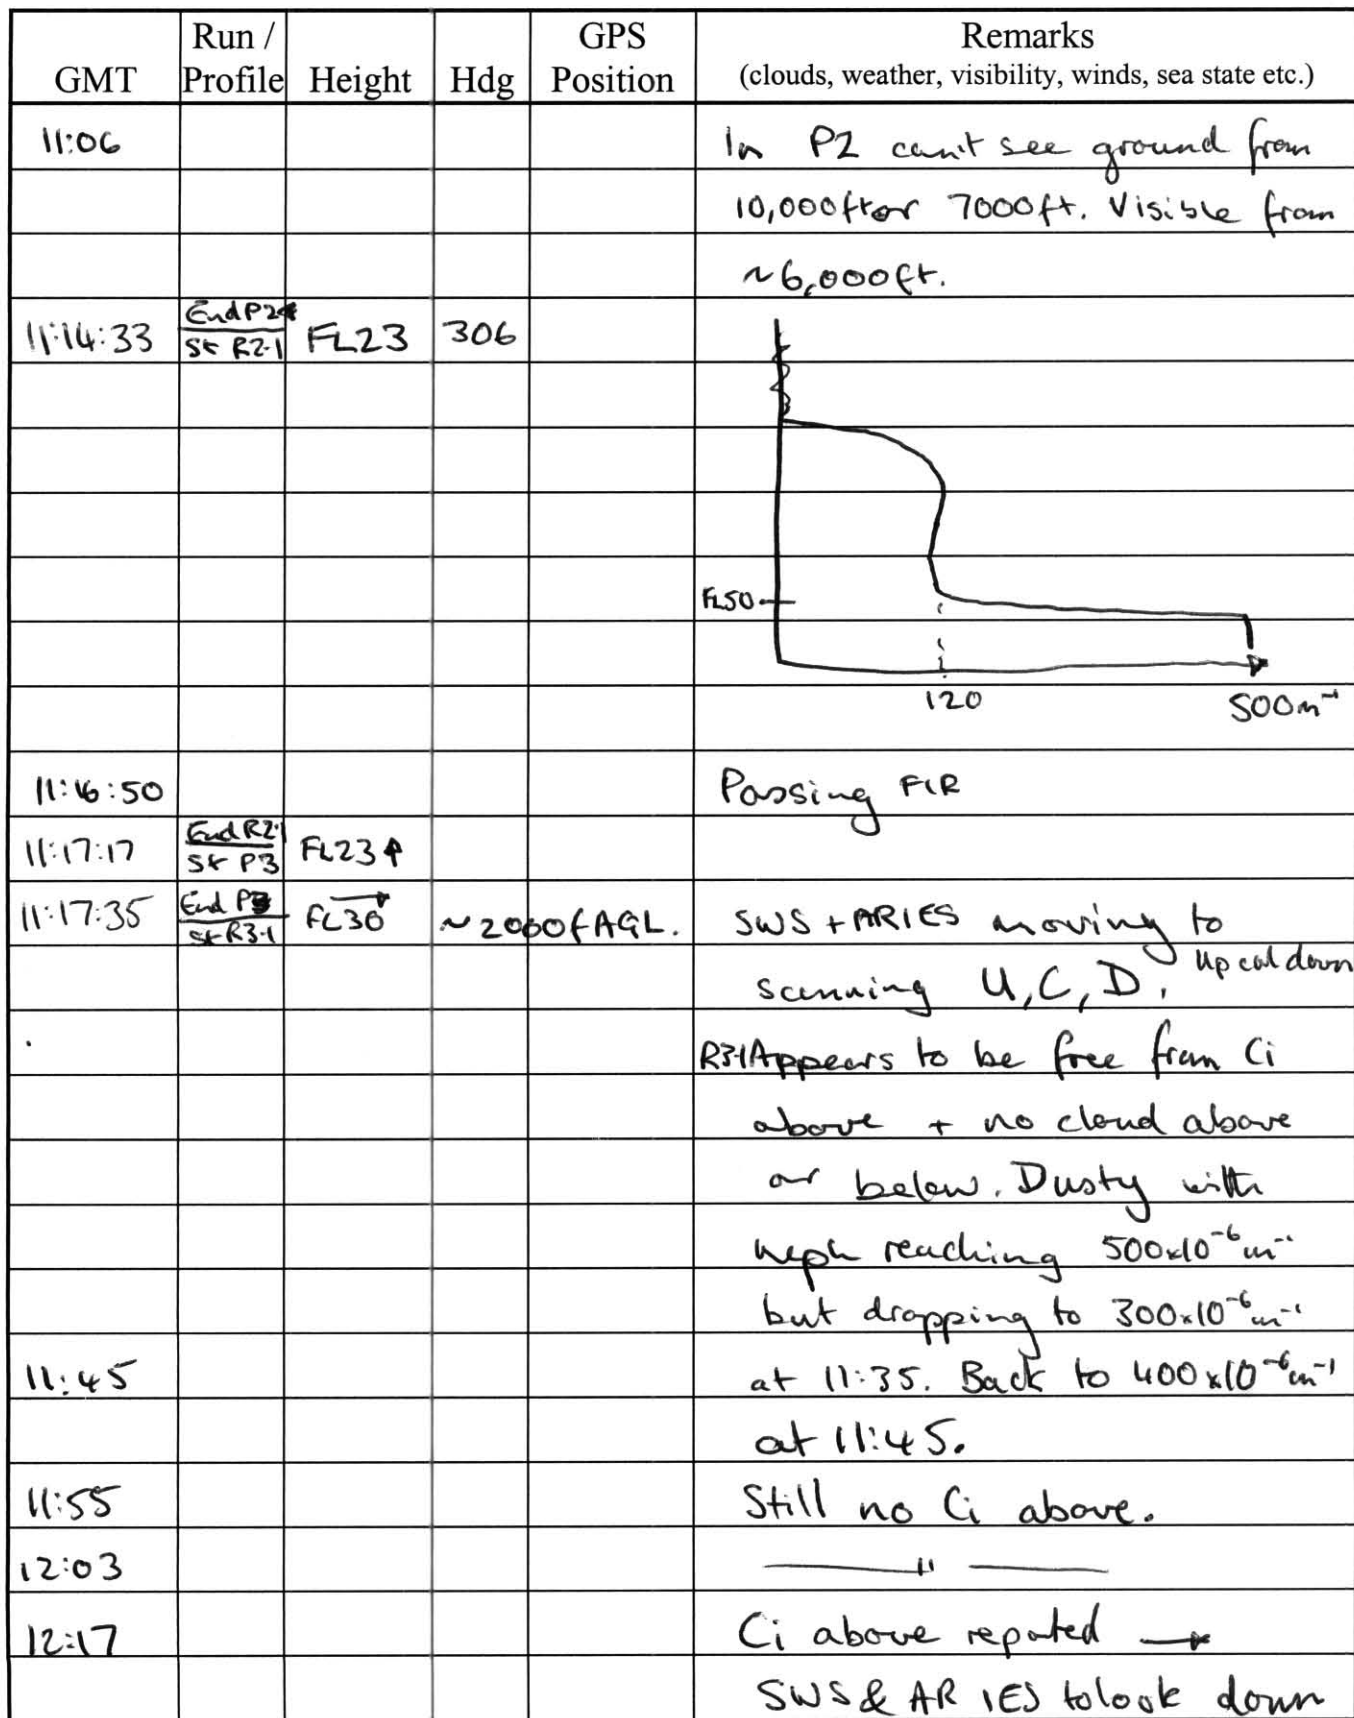 GMT Run / Profile Height Hdg GPS Position Remarks
(clouds, weather, visibility, winds, sea state etc.)
11:06 In P2 can't see ground from
10,000ft or 7000ft. Visible from
~6,000ft.
11:14:33 End P2 FL23 306
St R2.1
FL50
120 500m⁻¹
11:16:50 Passing FIR
11:17:17 End R2.1 FL23↑
St P3
11:17:35 End P3 FL30 ~2000fAGL. SWS + ARIES moving to
St R3.1
scanning U, C, D, up cal down
R3.1 Appears to be free from Ci
above + no cloud above
or below. Dusty with
neph reaching 500x10⁻⁶m⁻¹
but dropping to 300x10⁻⁶m⁻¹
11:45 at 11:35. Back to 400x10⁻⁶m⁻¹
at 11:45.
11:55 Still no Ci above.
12:03 —— 〃 ——
12:17 Ci above reported →
SWS & ARIES to look down